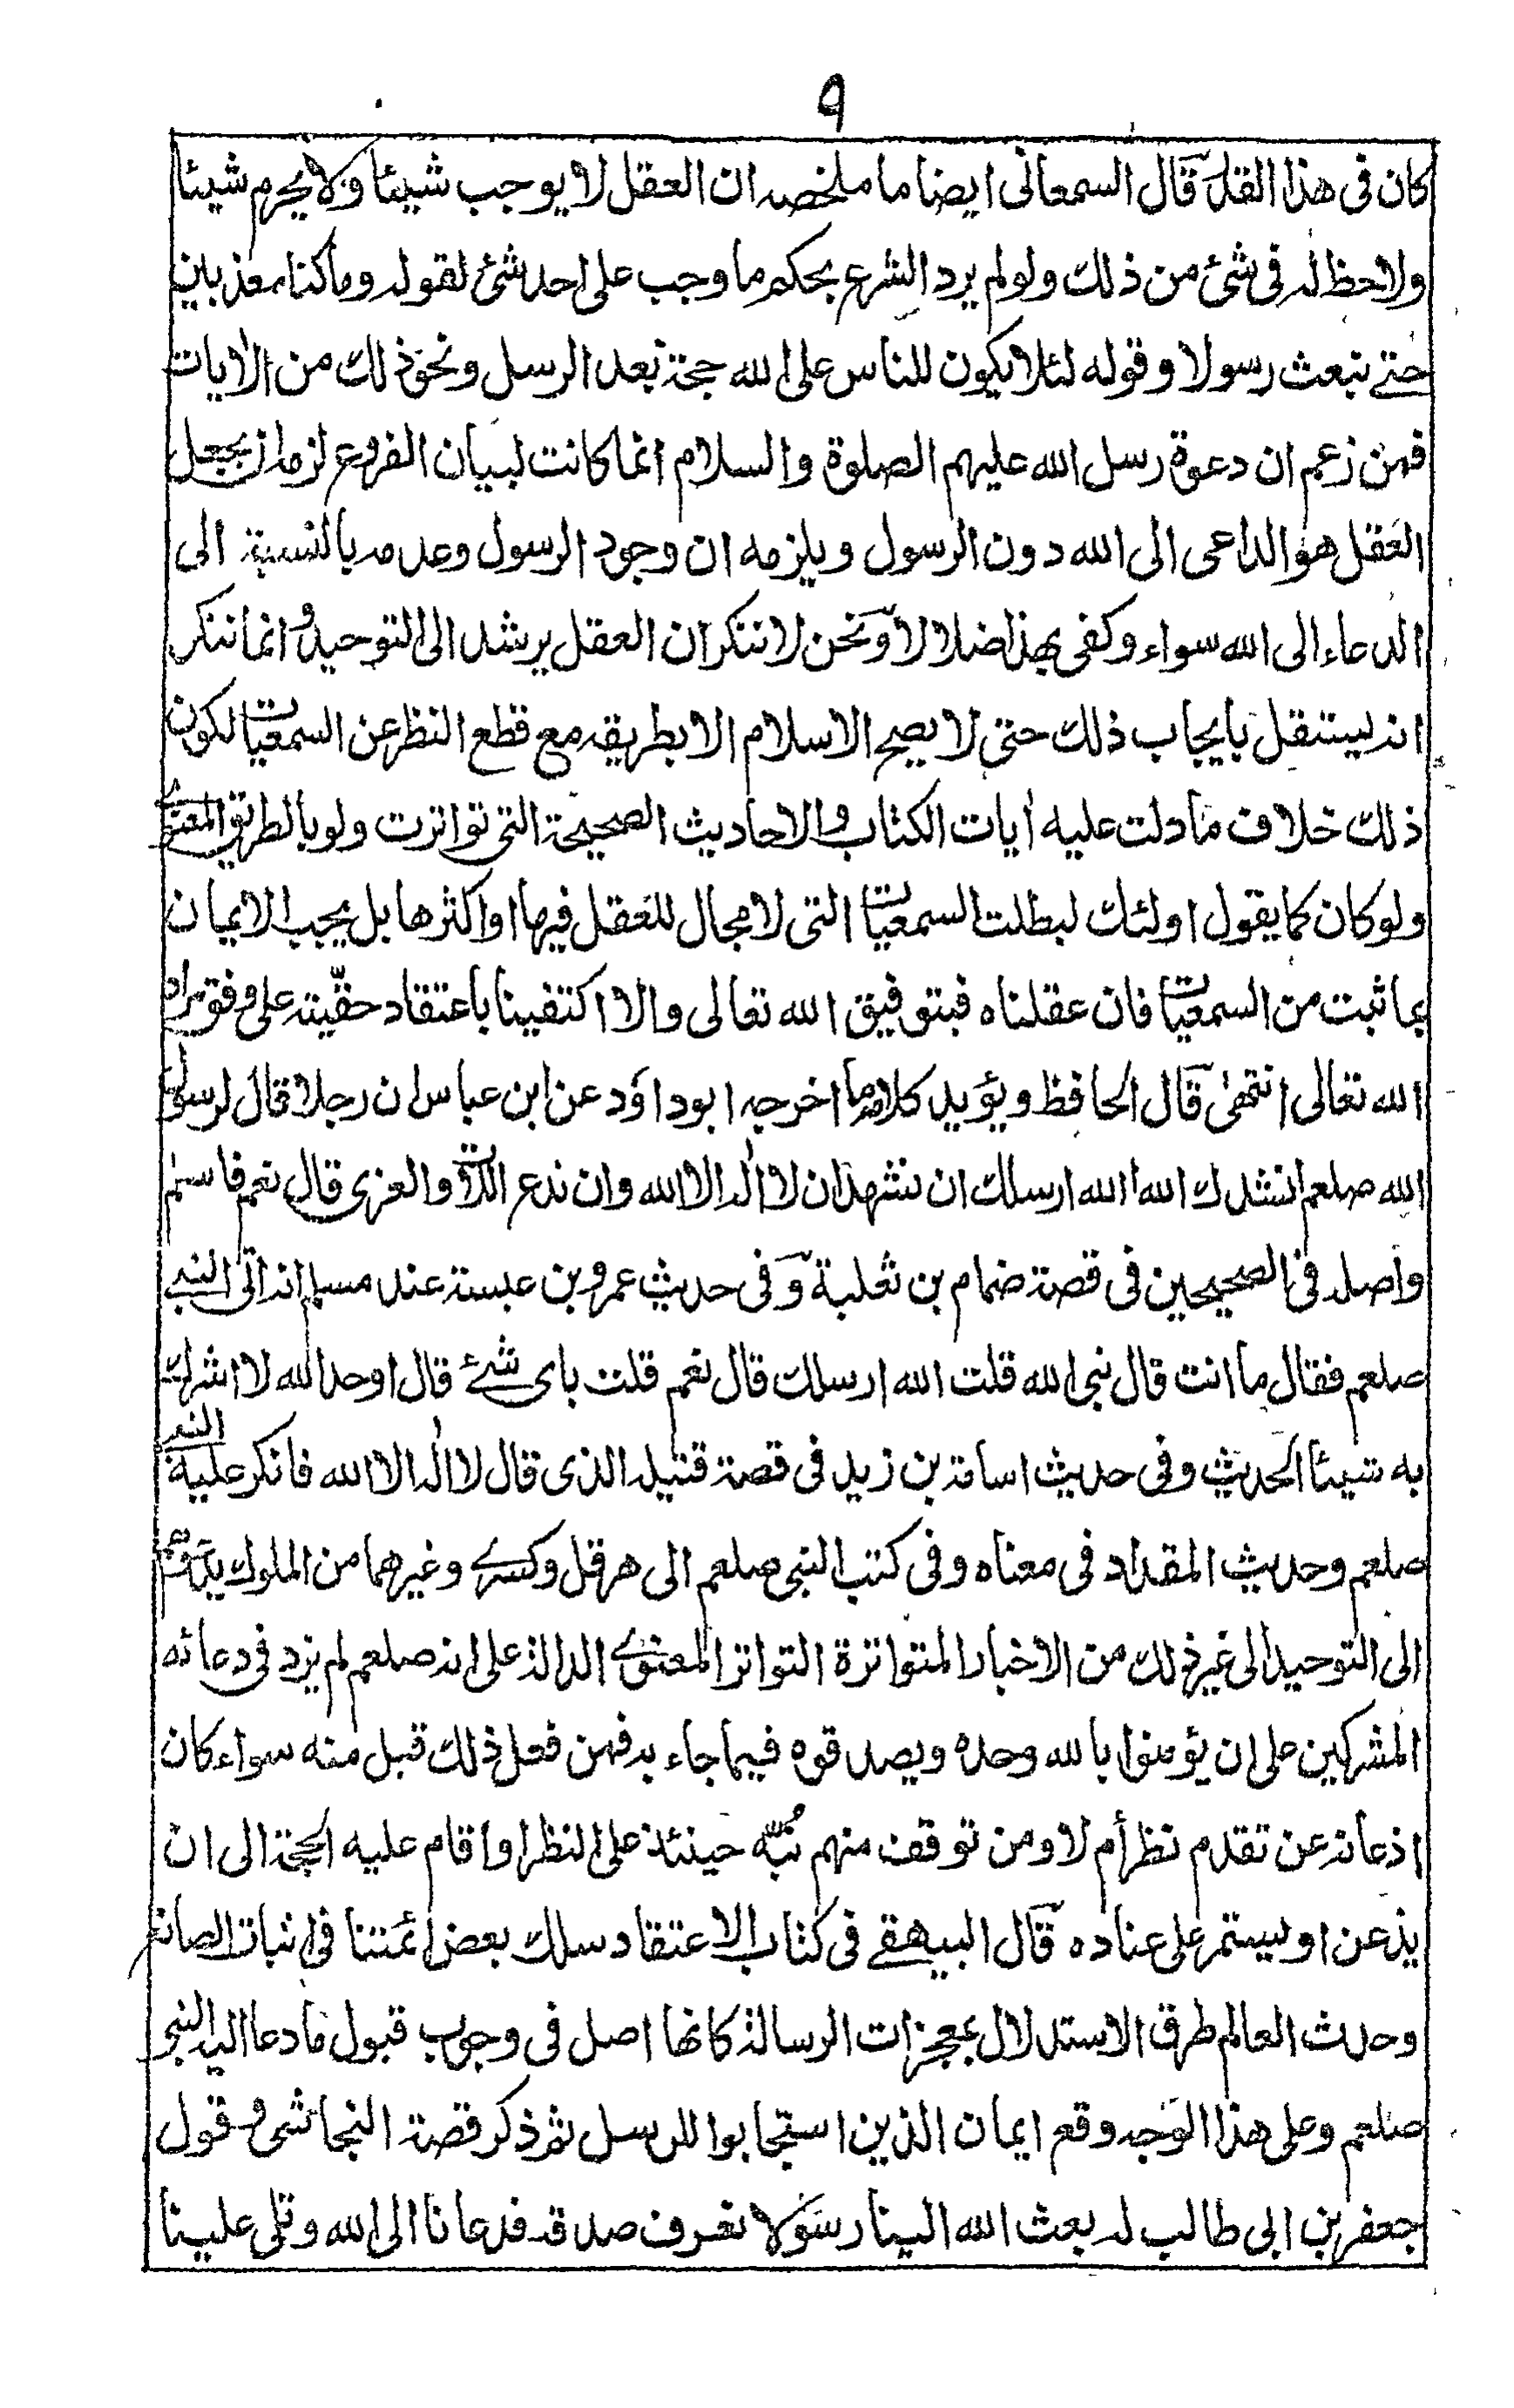 ٩
كان فى هذا القدر قال السمعانى ايضا ما ملخصه ان العقل لا يوجب شيئا ولا يحرم شيئا
ولاحظ له فى شئ من ذلك ولو لم يرد الشرع بحكم ما وجب على احد شئ لقوله وما كنا معذبين
حتے نبعث رسولا وقوله لئلا يكون للناس على الله حجة بعد الرسل ونحو ذلك من الايات
فمن زعم ان دعوة رسل الله عليهم الصلوة والسلام انما كانت لبيان الفروع لزمه ان يجعل
العقل هو الداعى الى الله دون الرسول ويلزمه ان وجود الرسول وعدمه بالنسبة الى
الدعاء الى الله سواء وكفى بهذا ضلالا ونحن لا ننكر ان العقل يرشد الى التوحيد وانما ننكر
انه ليستقل بايجاب ذلك حتى لا يصح الاسلام الا بطريقه مع قطع النظر عن السمعيات لكون
ذلك خلاف ما دلت عليه أيات الكتاب والاحاديث الصحيحة التى تواترت ولو بالطريق المعنوے
ولو كان كما يقول اولئك لبطلت السمعيات التى لا مجال للعقل فيها او اكثرها بل يجب الايمان
بما ثبت من السمعيات فان عقلناه فبتوفيق الله تعالى والا اكتفينا باعتقاد حقّيته على وفق مراد
الله تعالى انتهىٰ قال الحافظ ويؤيد كلامه ما اخرجه ابوداؤد عن ابن عباس ان رجلا قال لرسول
الله صلعم انشدك الله أالله ارسلك ان نشهد ان لا اله الا الله وان ندع اللات والعزى قال نعم فاسلم
واصله فى الصحيحين فى قصة ضمام بن ثعلبة وفى حديث عمرو بن عبسة عند مسلم انه اتى النبے
صلعم فقال ما انت قال نبى الله قلت الله ارسلك قال نعم قلت باى شئے قال اوحد الله لا اشرك
به شيئا الحديث وفى حديث اسامة بن زيد فى قصة قتيله الذى قال لا اله الا الله فانكر عليه النبے
صلعم وحديث المقداد فى معناه وفى كتب النبى صلعم الى هرقل وكسرے وغيرهما من الملوك يدعوهم
الى التوحيد الى غير ذلك من الاخبار المتواترة التواتر المعنوے الدالة على انه صلعم لم يزد فى دعائه
المشركين على ان يؤمنوا بالله وحده ويصدقوه فيما جاء به فمن فعل ذلك قبل منه سواء كان
اذعانه عن تقدم نظر أم لا ومن توقف منهم نُبّه حينئذ على النظر او اقام عليه الحجة الى ان
يذعن او ليستمر على عناده قال البيهقے فى كتاب الاعتقاد سلك بعض ائمتنا فى اثبات الصانع
وحدث العالم طرق الاستدلال بمعجزات الرسالة كانها اصل فى وجوب قبول ما دعا اليه النبے
صلعم وعلى هذا الوجه وقع ايمان الذين استجابوا للرسل ثم ذكر قصة النجاشى وقول
جعفر بن ابى طالب له بعث الله الينا رسولا نعرف صدقه فدعانا الى الله وتلى علينا